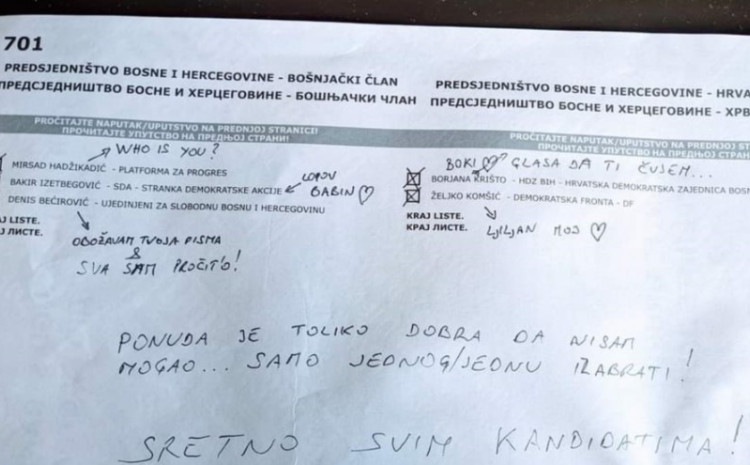 701
PREDSJEDNIŠTVO BOSNE I HERCEGOVINE - BOŠNJAČKI ČLAN
ПРЕДСЈЕДНИШТВО БОСНЕ И ХЕРЦЕГОВИНЕ - БОШЊАЧКИ ЧЛАН
PROČITAJTE NAPUTAK/UPUTSTVO NA PREDNJOJ STRANICI!
ПРОЧИТАЈТЕ УПУТСТВО НА ПРЕДЊОЈ СТРАНИ!
WHO IS YOU?
MIRSAD HADŽIKADIĆ - PLATFORMA ZA PROGRES
BAKIR IZETBEGOVIĆ - SDA - STRANKA DEMOKRATSKE AKCIJE
LOPOV
BABIN ♡
DENIS BEĆIROVIĆ - UJEDINJENI ZA SLOBODNU BOSNU I HERCEGOVINU
J LISTE.
J ЛИСТЕ.
OBOŽAVAM TVOJA PISMA
&
SVA SAM PROČIT'O!
PREDSJEDNIŠTVO BOSNE I HERCEGOVINE - HRVA
ПРЕДСЈЕДНИШТВО БОСНЕ И ХЕРЦЕГОВИНЕ - ХРВ
PROČITAJTE NAPUTAK/UPUTSTVO NA PREDNJOJ ST
ПРОЧИТАЈТЕ УПУТСТВО НА ПРЕДЊОЈ С
BOKI ♡ GLASA DA TI ČUJEM...
BORJANA KRIŠTO - HDZ BIH - HRVATSKA DEMOKRATSKA ZAJEDNICA BOS
ŽELJKO KOMŠIĆ - DEMOKRATSKA FRONTA - DF
KRAJ LISTE.
КРАЈ ЛИСТЕ.
LJILJAN MOJ ♡
PONUDA JE TOLIKO DOBRA DA NISAM
MOGAO... SAMO JEDNOG/JEDNU IZABRATI!
SRETNO SVIM KANDIDATIMA!